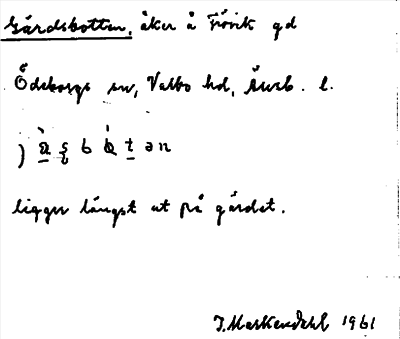 Gårdsbotten, åker å Törvik gd
Ödeborgs sn, Valbo hd, Älvsb. l.
ligger längst ut på gärdet.
J. Markendahl 1961